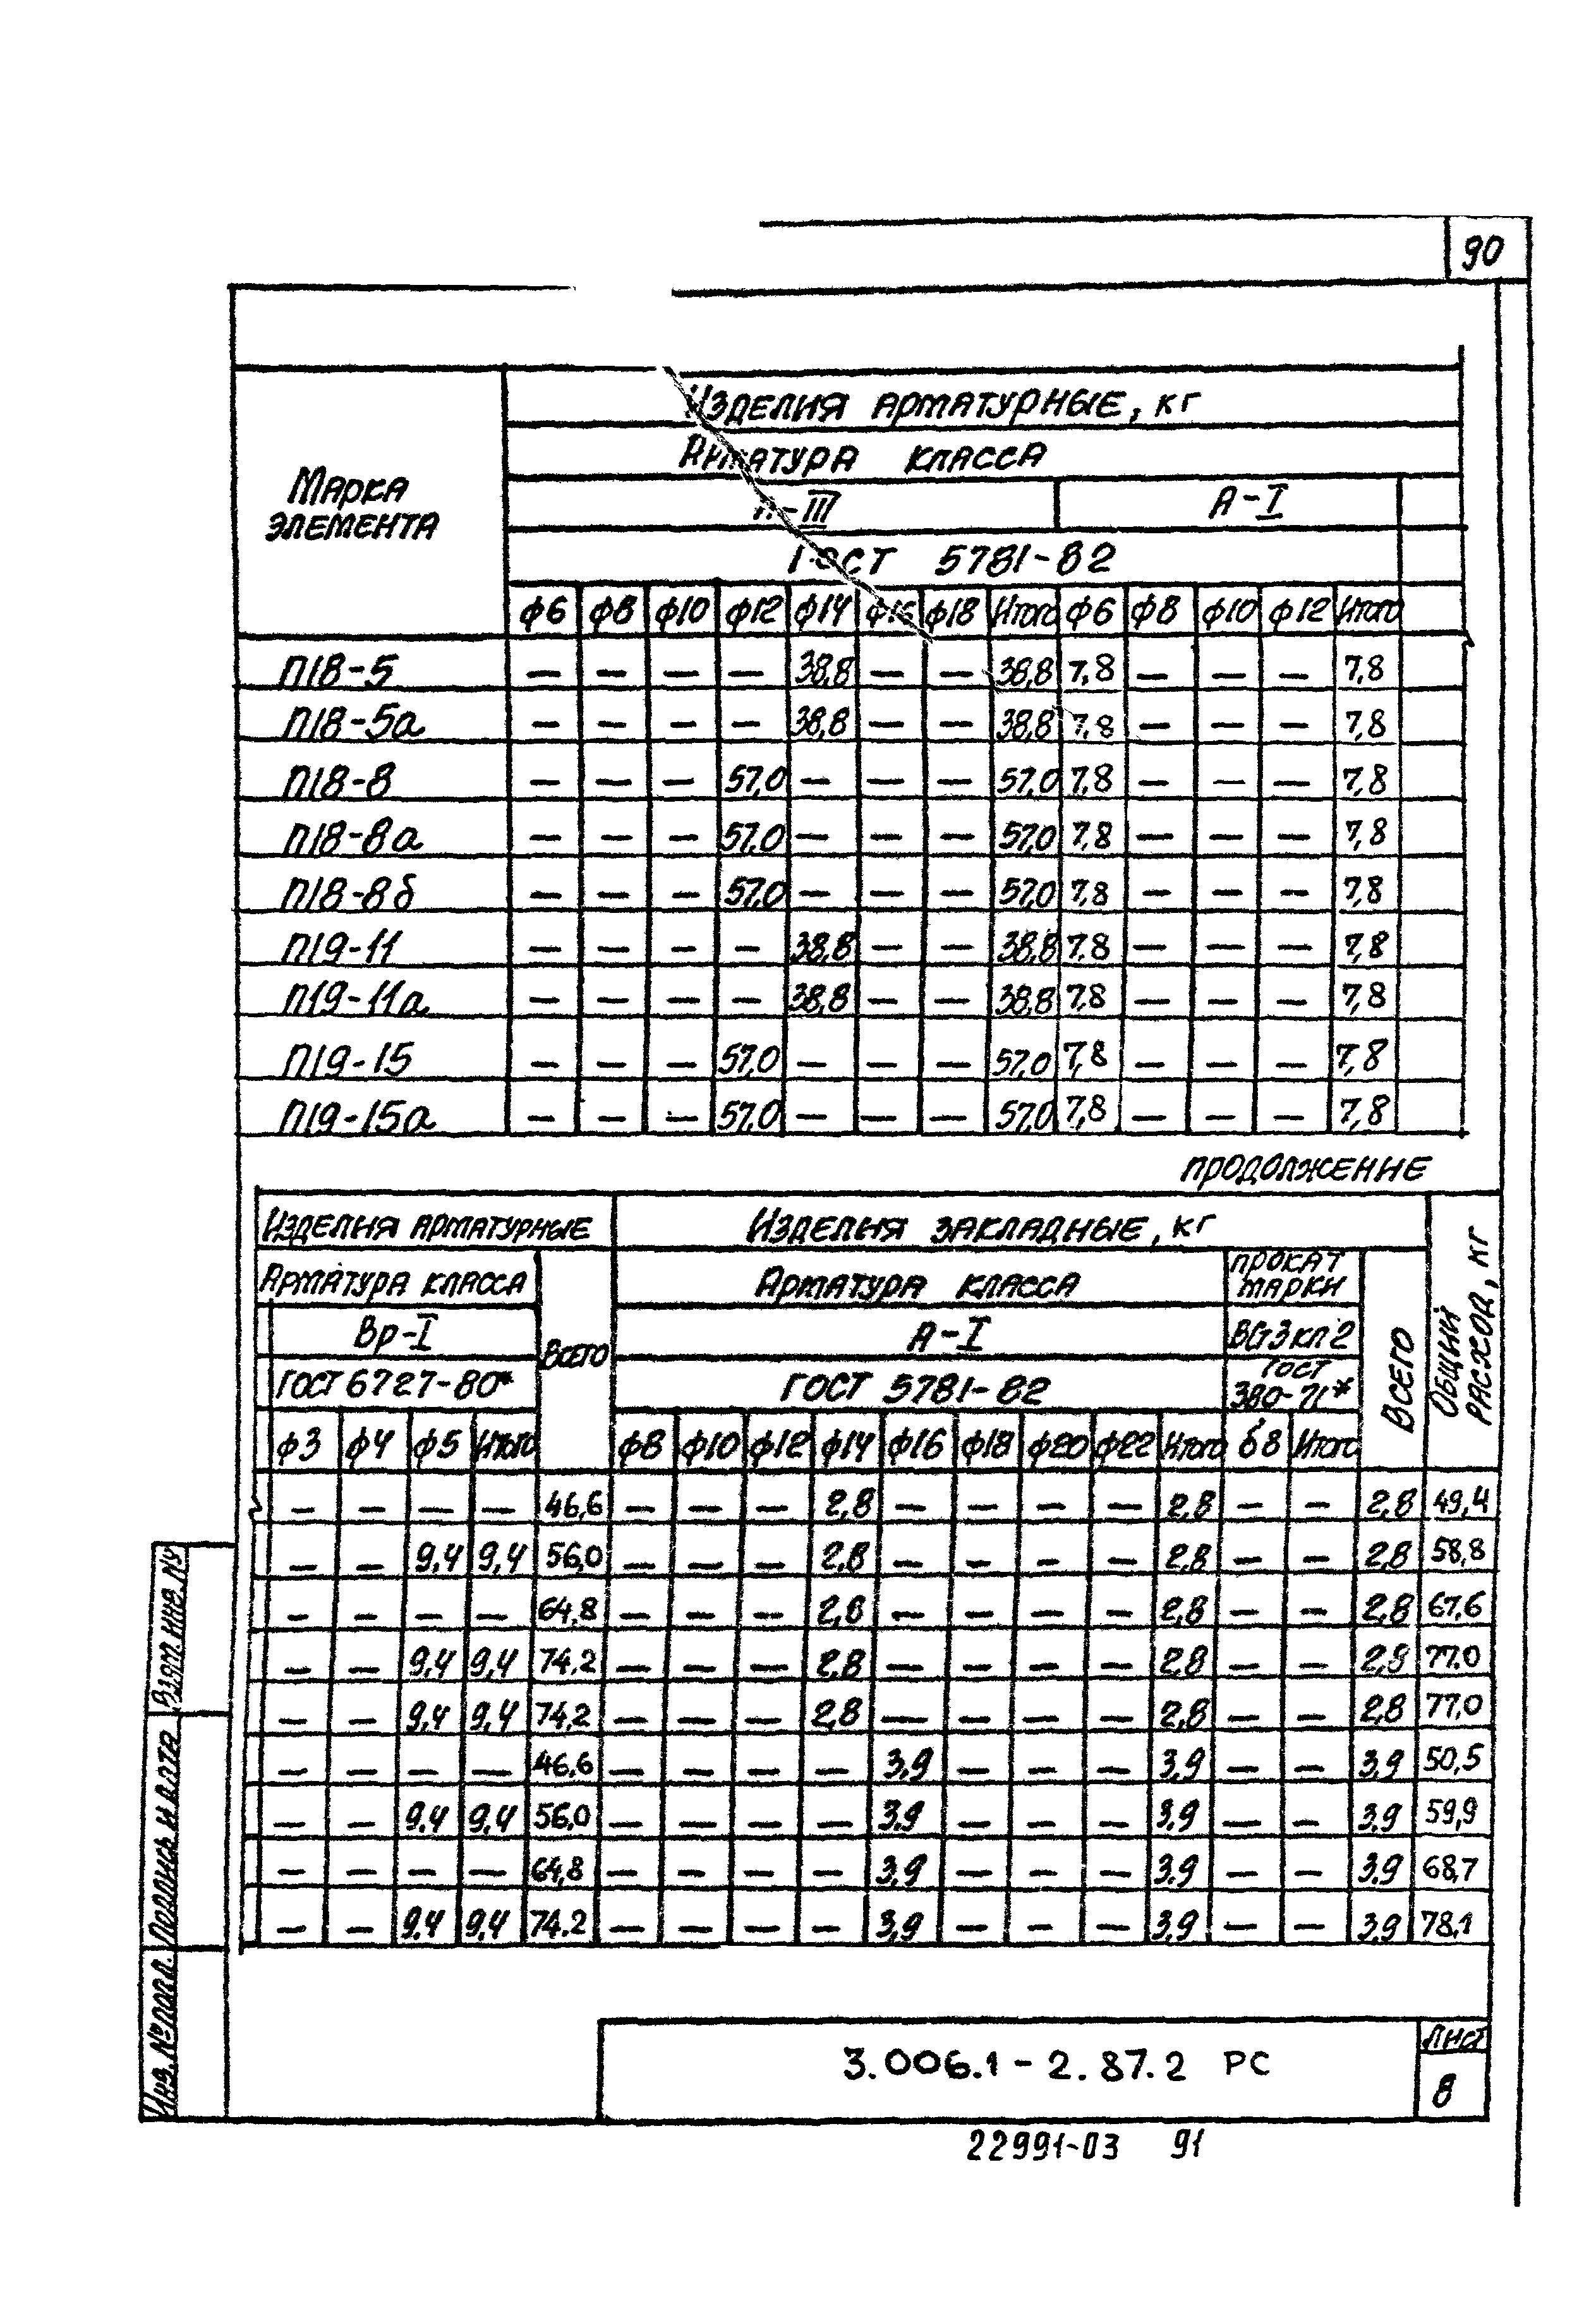 90
Изделия арматурные, кг
Арматура класса
Марка элемента
А-III А-I
ГОСТ 5781-82
ф6 ф8 ф10 ф12 ф14 ф16 ф18 Итого ф6 ф8 ф10 ф12 Итого
П18-5 — — — — 38,8 — — 38,8 7,8 — — — 7,8
П18-5а — — — — 38,8 — — 38,8 7,8 — — — 7,8
П18-8 — — — 57,0 — — — 57,0 7,8 — — — 7,8
П18-8а — — — 57,0 — — — 57,0 7,8 — — — 7,8
П18-8б — — — 57,0 — — — 57,0 7,8 — — — 7,8
П19-11 — — — — 38,8 — — 38,8 7,8 — — — 7,8
П19-11а — — — — 38,8 — — 38,8 7,8 — — — 7,8
П19-15 — — — 57,0 — — — 57,0 7,8 — — — 7,8
П19-15а — — — 57,0 — — — 57,0 7,8 — — — 7,8
продолжение
Изделия арматурные Изделия закладные, кг Общий расход, кг
Арматура класса Всего Арматура класса Прокат марки Всего
Вр-I А-I ВСт3кп2
ГОСТ 6727-80* ГОСТ 5781-82 ГОСТ 380-71*
ф3 ф4 ф5 Итого ф8 ф10 ф12 ф14 ф16 ф18 ф20 ф22 Итого δ8 Итого
— — — — 46,6 — — — 2,8 — — — — 2,8 — — 2,8 49,4
— — 9,4 9,4 56,0 — — — 2,8 — — — — 2,8 — — 2,8 58,8
— — — — 64,8 — — — 2,8 — — — — 2,8 — — 2,8 67,6
— — 9,4 9,4 74,2 — — — 2,8 — — — — 2,8 — — 2,8 77,0
— — 9,4 9,4 74,2 — — — 2,8 — — — — 2,8 — — 2,8 77,0
— — — — 46,6 — — — — 3,9 — — — 3,9 — — 3,9 50,5
— — 9,4 9,4 56,0 — — — — 3,9 — — — 3,9 — — 3,9 59,9
— — — — 64,8 — — — — 3,9 — — — 3,9 — — 3,9 68,7
— — 9,4 9,4 74,2 — — — — 3,9 — — — 3,9 — — 3,9 78,1
Взам. инв. №
Подпись и дата
Инв. № подл.
3.006.1-2.87.2 РС
Лист
8
22991-03 91